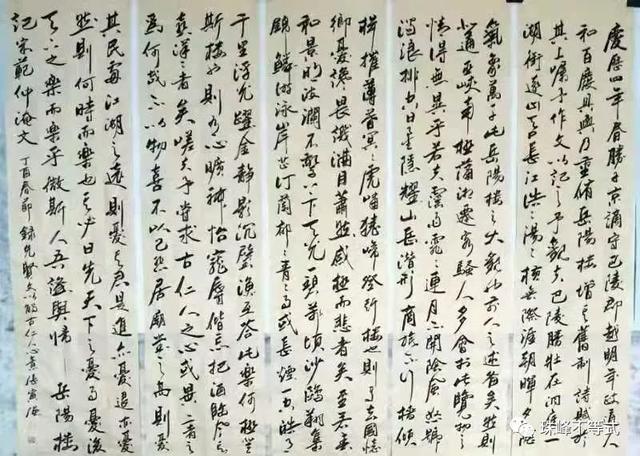 慶歷四年春滕子京謫守巴陵郡越明年政通人
和百廢具興乃重脩岳陽樓增其舊制詩賦於
其上囑予作文以記之予觀夫巴陵勝狀在洞庭一
湖銜遠山吞長江浩浩湯湯橫無際涯朝暉夕陰
氣象萬千此岳陽樓之大觀也前人之述備矣然則
北通巫峽南極瀟湘遷客騷人多會於此覽物之
情得無異乎若夫霪雨霏霏連月不開陰風怒號
濁浪排空日星隱耀山岳潛形商旅不行檣傾
楫摧薄暮冥冥虎嘯猿啼登斯樓也則有去國懷
鄉憂讒畏譏滿目蕭然感極而悲者矣至若春
和景明波瀾不驚上下天光一碧萬頃沙鷗翔集
錦鱗游泳岸芷汀蘭郁郁青青而或長煙一空皓月
千里浮光躍金靜影沉璧漁歌互答此樂何極登
斯樓也則有心曠神怡寵辱偕忘把酒臨風其
喜洋洋者矣嗟夫予嘗求古仁人之心或異二者之
為何哉不以物喜不以己悲居廟堂之高則憂
其民處江湖之遠則憂其君是進亦憂退亦憂
然則何時而樂也其必曰先天下之憂而憂後
天下之樂而樂乎微斯人吾誰與歸 岳陽樓
記宋範仲淹文 丁酉春節錄先賢文以明古仁人心
珠峰不等式